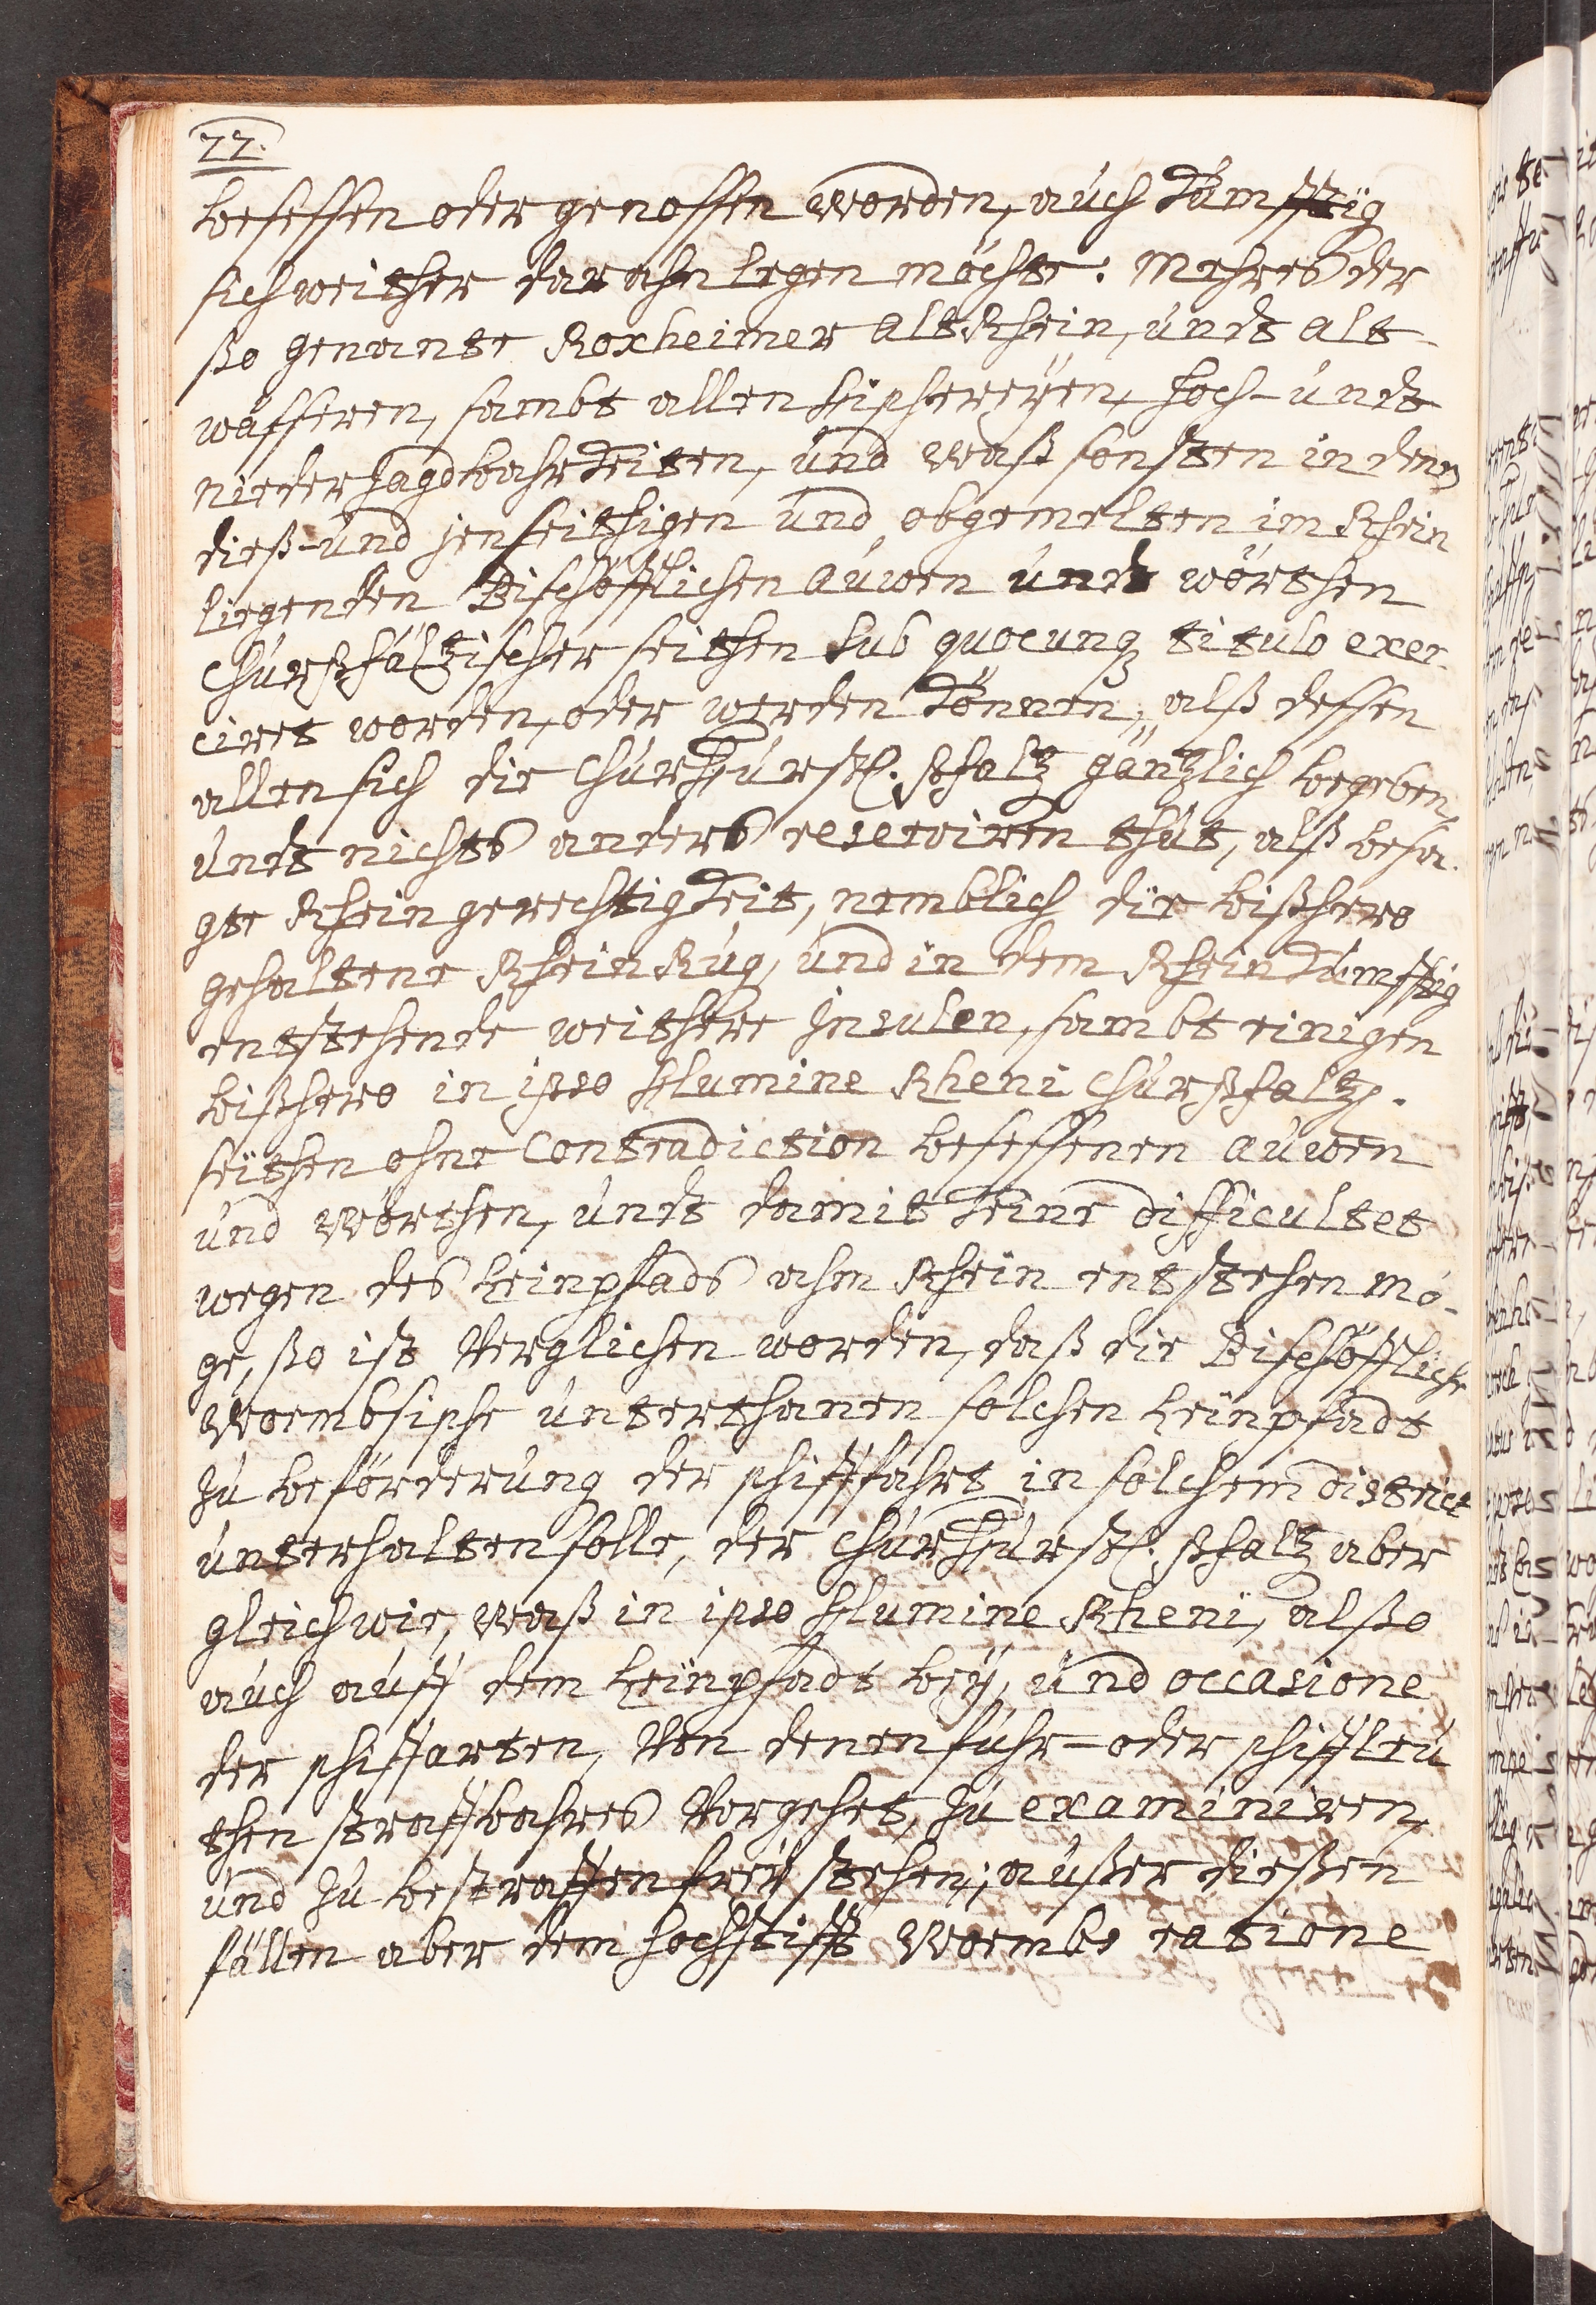 22.
besessen oder genossen worden, auch Künfftig
sich weither dar ahn legen möchte. Mehres der
ßo genante Roxheimer Alt Rhein, undt alt-
wässeren, sambt allen Fischereyen, Hoch- undt
nieder Jagdbahrkeiten, und waß sonsten in denen
dieß- und jenseithigen und obgemelten im Rhein
liegenden Bischöfflichen Auwen undt wörthen
Churpfältzischer seithen sub quocunq titulo exer-
ciret worden, oder werden Können, alß dessen
allen sich die ChurFürstl. Pfaltz gäntzlich begeben,
undt nichts anders reserviren thut, alß besa-
gte Rheingerechtigkeit, nemblich die bißhero
gehaltene Rhein Rüg, und in dem Rhein Künfftig
entstehende weithere Insulen, sambt einigen
bißhero in ipso Flumine Rheni Churpfaltz.
seithen ohne Contradiction besessenen Auwen
und Wörthen, undt damit Keine difficultet
wegen des Leinpfads ahm Rhein entstehen mö-
ge, ßo ist Verglichen worden, daß die Bischöffliche
Wormbsische unterthanen solchen Leinpfadt
zu beförderung der schifffahrt in solchem district
unterhalten solle, der ChurFürstl. Pfaltz aber
gleich wie, waß in ipso Flumine Rheni, alßo
auch auff dem Leinpfadt bey, und occasione
der schiffarten, Von denen fuhr- oder schiffleu
then straffbahres Vorgehet, zu examiniren,
und zu bestraffen frey stehen; außer dießen
fällen aber dem Hochstifft Wormbs ratione